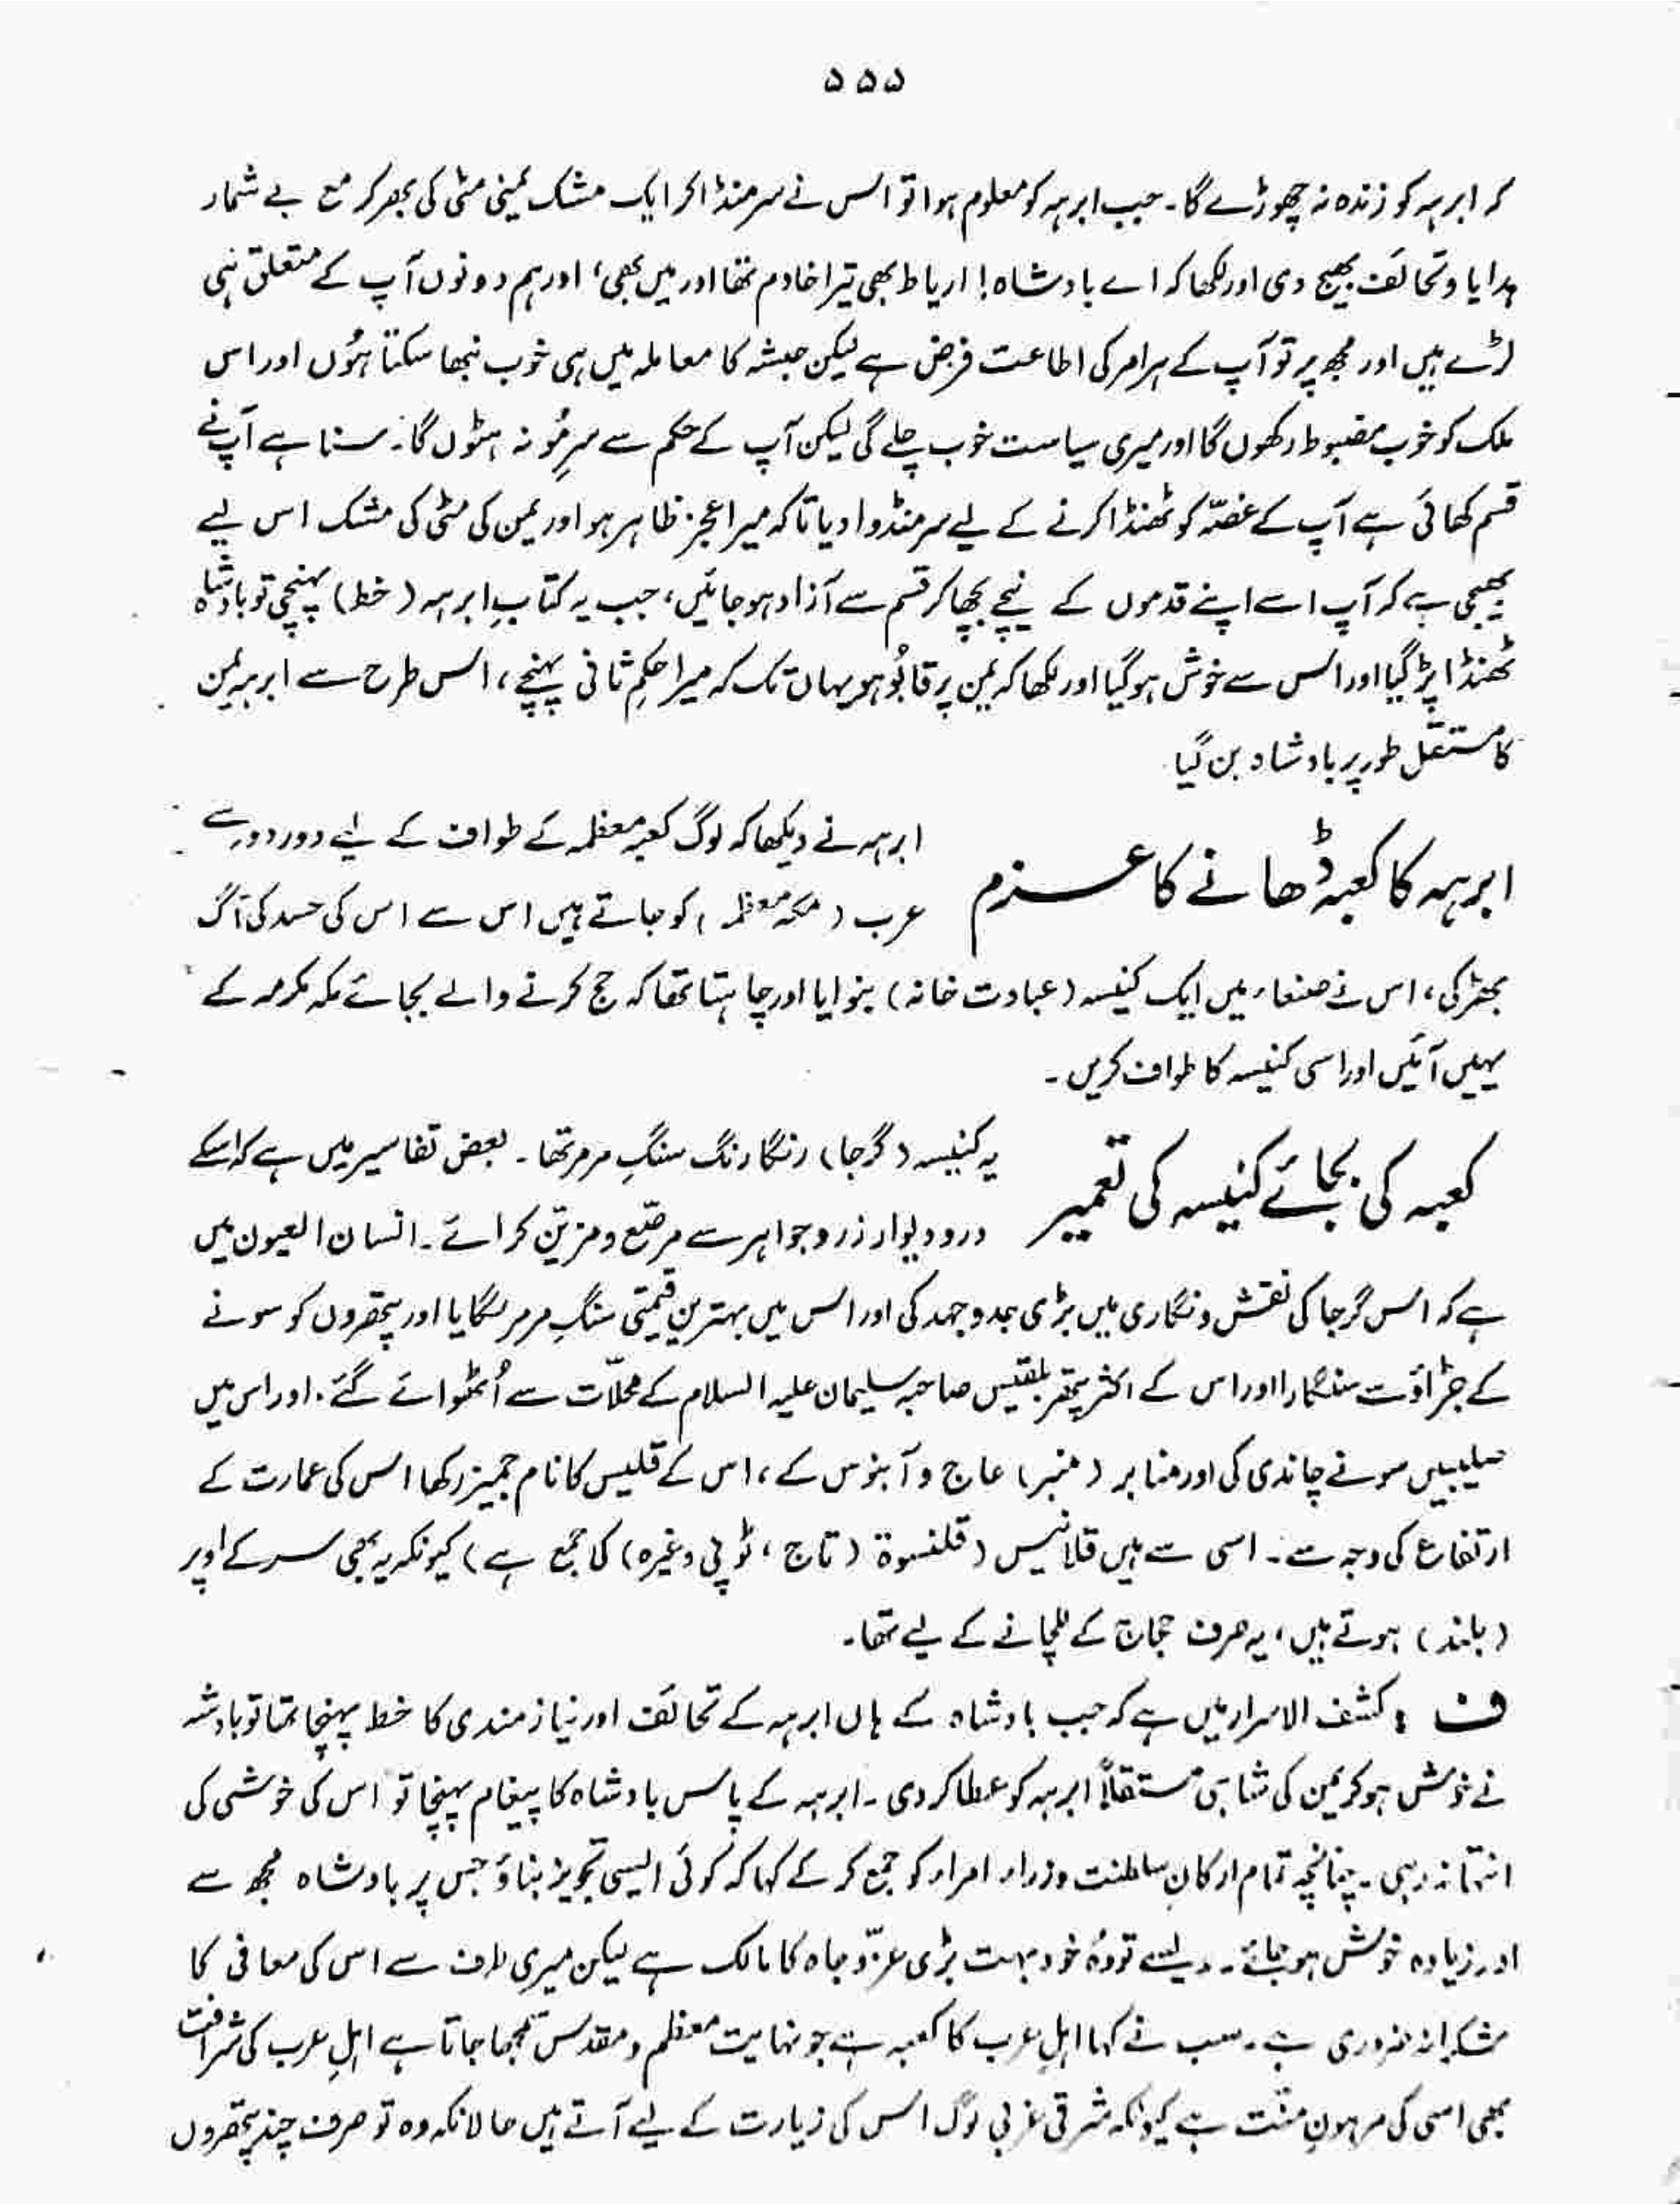 ۵۵۵
کہ ابرہہ کو زندہ نہ چھوڑے گا۔ جب ابرہہ کو معلوم ہوا تو اس نے سر منڈا کر ایک مشک یمنی مٹی کی بھر کر مع بے شمار
ہدایا و تحائف بھیج دی اور لکھا کہ اے بادشاہ! ارياط بھی تیرا خادم تھا اور میں بھی، اور ہم دونوں آپ کے متعلق ہی
لڑے ہیں اور مجھ پر تو آپ کے ہر امر کی اطاعت فرض ہے لیکن حبشہ کا معاملہ میں ہی خوب نبھا سکتا ہُوں اور اس
ملک کو خوب مضبوط رکھوں گا اور میری سیاست خوب چلے گی لیکن آپ کے حکم سے سرِمُو نہ ہٹوں گا۔ سنا ہے آپ نے
قسم کھائی ہے آپ کے غصّہ کو ٹھنڈا کرنے کے لیے سر منڈوا دیا تاکہ میرا عجز ظاہر ہو اور یمن کی مٹی کی مشک اس لیے
بھیجی ہے کہ آپ اسے اپنے قدموں کے نیچے بچھا کر قسم سے آزاد ہو جائیں، جب یہ کتابِ ابرہہ (خط) پہنچی تو بادشاہ
ٹھنڈا پڑ گیا اور اس سے خوش ہو گیا اور لکھا کہ یمن پر قابُو ہو یہاں تک کہ میرا حکمِ ثانی پہنچے، اس طرح سے ابرہہ یمن
کا مستقل طور پر بادشاہ بن گیا
ابرہہ کا کعبہ ڈھانے کا عزم
ابرہہ نے دیکھا کہ لوگ کعبہ معظمہ کے طواف کے لیے دور دور سے
عرب (مکہ معظمہ) کو جاتے ہیں اس سے اس کی حسد کی آگ
بھڑکی، اس نے صنعاء میں ایک کنیسہ (عبادت خانہ) بنوایا اور چاہتا تھا کہ حج کرنے والے بجائے مکہ مکرمہ کے
یہیں آئیں اور اسی کنیسہ کا طواف کریں۔
کعبہ کی بجائے کنیسہ کی تعمیر
یہ کنیسہ (گرجا) رنگا رنگ سنگِ مرمر تھا۔ بعض تفاسیر میں ہے کہ اسکے
در و دیوار زر و جواہر سے مرصّع و مزیّن کرائے۔ انسان العیون میں
ہے کہ اس گرجا کی نقش و نگاری میں بڑی جدوجہد کی اور اس میں بہترین قیمتی سنگِ مرمر لگایا اور پتھروں کو سونے
کے جڑاؤ سے سنگھارا اور اس کے اکثر پتھر بلقیس صاحبہ سلیمان علیہ السلام کے محلّات سے اُٹھوائے گئے۔ اور اس میں
صلیبیں سونے چاندی کی اور منابر (منبر) عاج و آبنوس کے، اس کے قلیس کا نام جمیز رکھا اس کی عمارت کے
ارتفاع کی وجہ سے۔ اسی سے ہیں قلانیس (قلنسوۃ (تاج، ٹوپی وغیرہ) کی جمع ہے) کیونکہ یہ بھی سر کے اوپر
(بلند) ہوتے ہیں، یہ صرف حجاج کے للچانے کے لیے تھا۔
ف : کشف الاسرار میں ہے کہ جب بادشاہ کے ہاں ابرہہ کے تحائف اور نیاز مندی کا خط پہنچا تھا تو بادشہ
نے خوش ہو کر یمن کی شاہی مستقلاً ابرہہ کو عطا کر دی۔ ابرہہ کے پاس بادشاہ کا پیغام پہنچا تو اس کی خوشی کی
انتہا نہ رہی۔ چنانچہ تمام ارکانِ سلطنت وزراء امراء کو جمع کر کے کہا کہ کوئی ایسی تجویز بتاؤ جس پر بادشاہ مجھ سے
اور زیادہ خوش ہو جائے۔ ویسے تو وُہ خود بہت بڑی عزّ و جاہ کا مالک ہے لیکن میری طرف سے اس کی معافی کا
شکرانہ ضروری ہے۔ سب نے کہا اہلِ عرب کا کعبہ ہے جو نہایت معظم و مقدس سمجھا جاتا ہے اہلِ عرب کی شرافت
بھی اسی کی مرہونِ منّت ہے کیونکہ شرقی غربی لوگ اس کی زیارت کے لیے آتے ہیں حالانکہ وہ تو صرف چند پتھروں